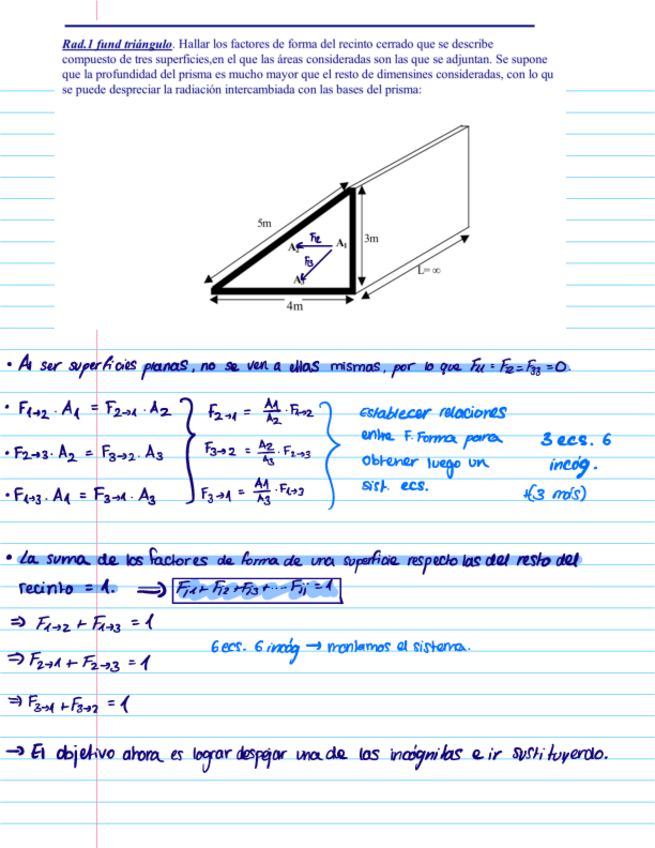 Rad.1 fund triángulo. Hallar los factores de forma del recinto cerrado que se describe
compuesto de tres superficies,en el que las áreas consideradas son las que se adjuntan. Se supone
que la profundidad del prisma es mucho mayor que el resto de dimensines consideradas, con lo qu
se puede despreciar la radiación intercambiada con las bases del prisma:
5m
A₂
F12
A₁
3m
F13
A₃
L=∞
4m
• Al ser superficies planas, no se ven a ellas mismas, por lo que F11 = F22 = F33 = 0.
• F1→2 · A1 = F2→1 · A2
• F2→3 · A2 = F3→2 · A3
• F1→3 · A1 = F3→1 · A3
F2→1 = A1/A2 · F1→2
F3→2 = A2/A3 · F2→3
F3→1 = A1/A3 · F1→3
Establecer relaciones
entre F. Forma para
obtener luego un
sist. ecs.
3 ecs. 6
incóg.
+(3 más)
• La suma de los factores de forma de una superficie respecto las del resto del
recinto = 1. ⟹ Fj1 + Fj2 + Fj3 + ... Fjj = 1
⇒ F1→2 + F1→3 = 1
⇒ F2→1 + F2→3 = 1
⇒ F3→1 + F3→2 = 1
6 ecs. 6 incóg → montamos el sistema.
→ El objetivo ahora es lograr despejar una de las incógnitas e ir sustituyendo.